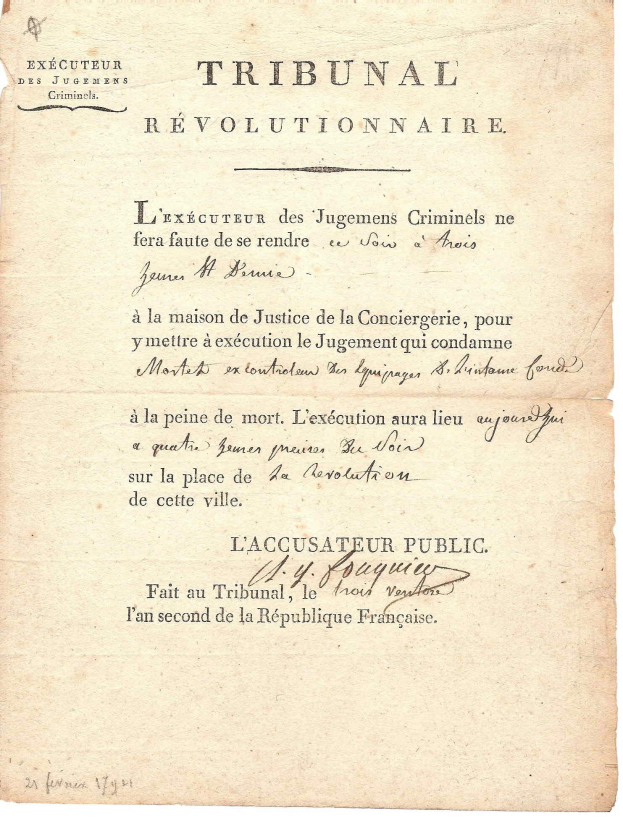 EXÉCUTEUR
DES JUGEMENS
Criminels.
TRIBUNAL
RÉVOLUTIONNAIRE.
L'EXÉCUTEUR des Jugemens Criminels ne
fera faute de se rendre ce soir à trois
heures et Demie
à la maison de Justice de la Conciergerie, pour
y mettre à exécution le Jugement qui condamne
ex controleur Des Equipages De
à la peine de mort. L'exécution aura lieu aujourd'hui
a quatre heures Du Soir
sur la place de La Revolution
de cette ville.
L'ACCUSATEUR PUBLIC.
Fouquier
Fait au Tribunal, le trois ventose
l'an second de la République Française.